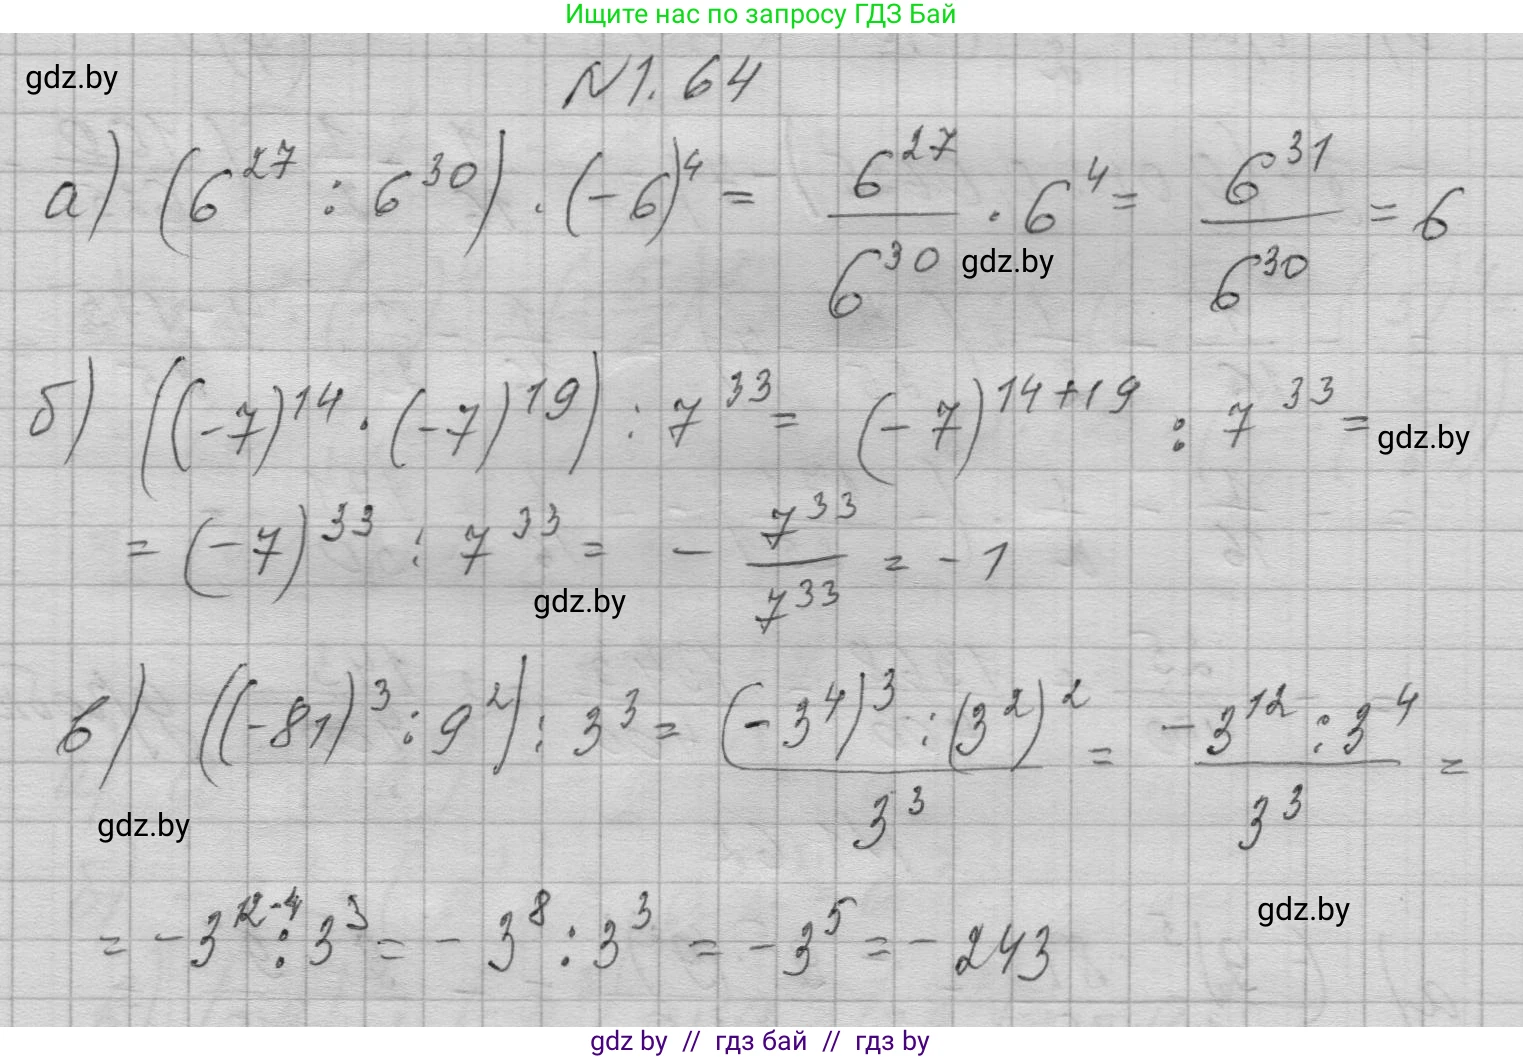 Ищите нас по запросу ГДЗ Бай
gdz.by
N1.64
а) (6^27 : 6^30) · (-6)^4 = 6^27/6^30 · 6^4 = 6^31/6^30 = 6
gdz.by
б) ((-7)^14 · (-7)^19) : 7^33 = (-7)^14+19 : 7^33 =
gdz.by
= (-7)^33 : 7^33 = - 7^33/7^33 = -1
gdz.by
в) ((-81)^3 : 9^2) : 3^3 = (-3^4)^3 : (3^2)^2/3^3 = -3^12 : 3^4/3^3 =
gdz.by
= -3^12-4 : 3^3 = -3^8 : 3^3 = -3^5 = -243
gdz.by
gdz by // гдз бай // гдз by